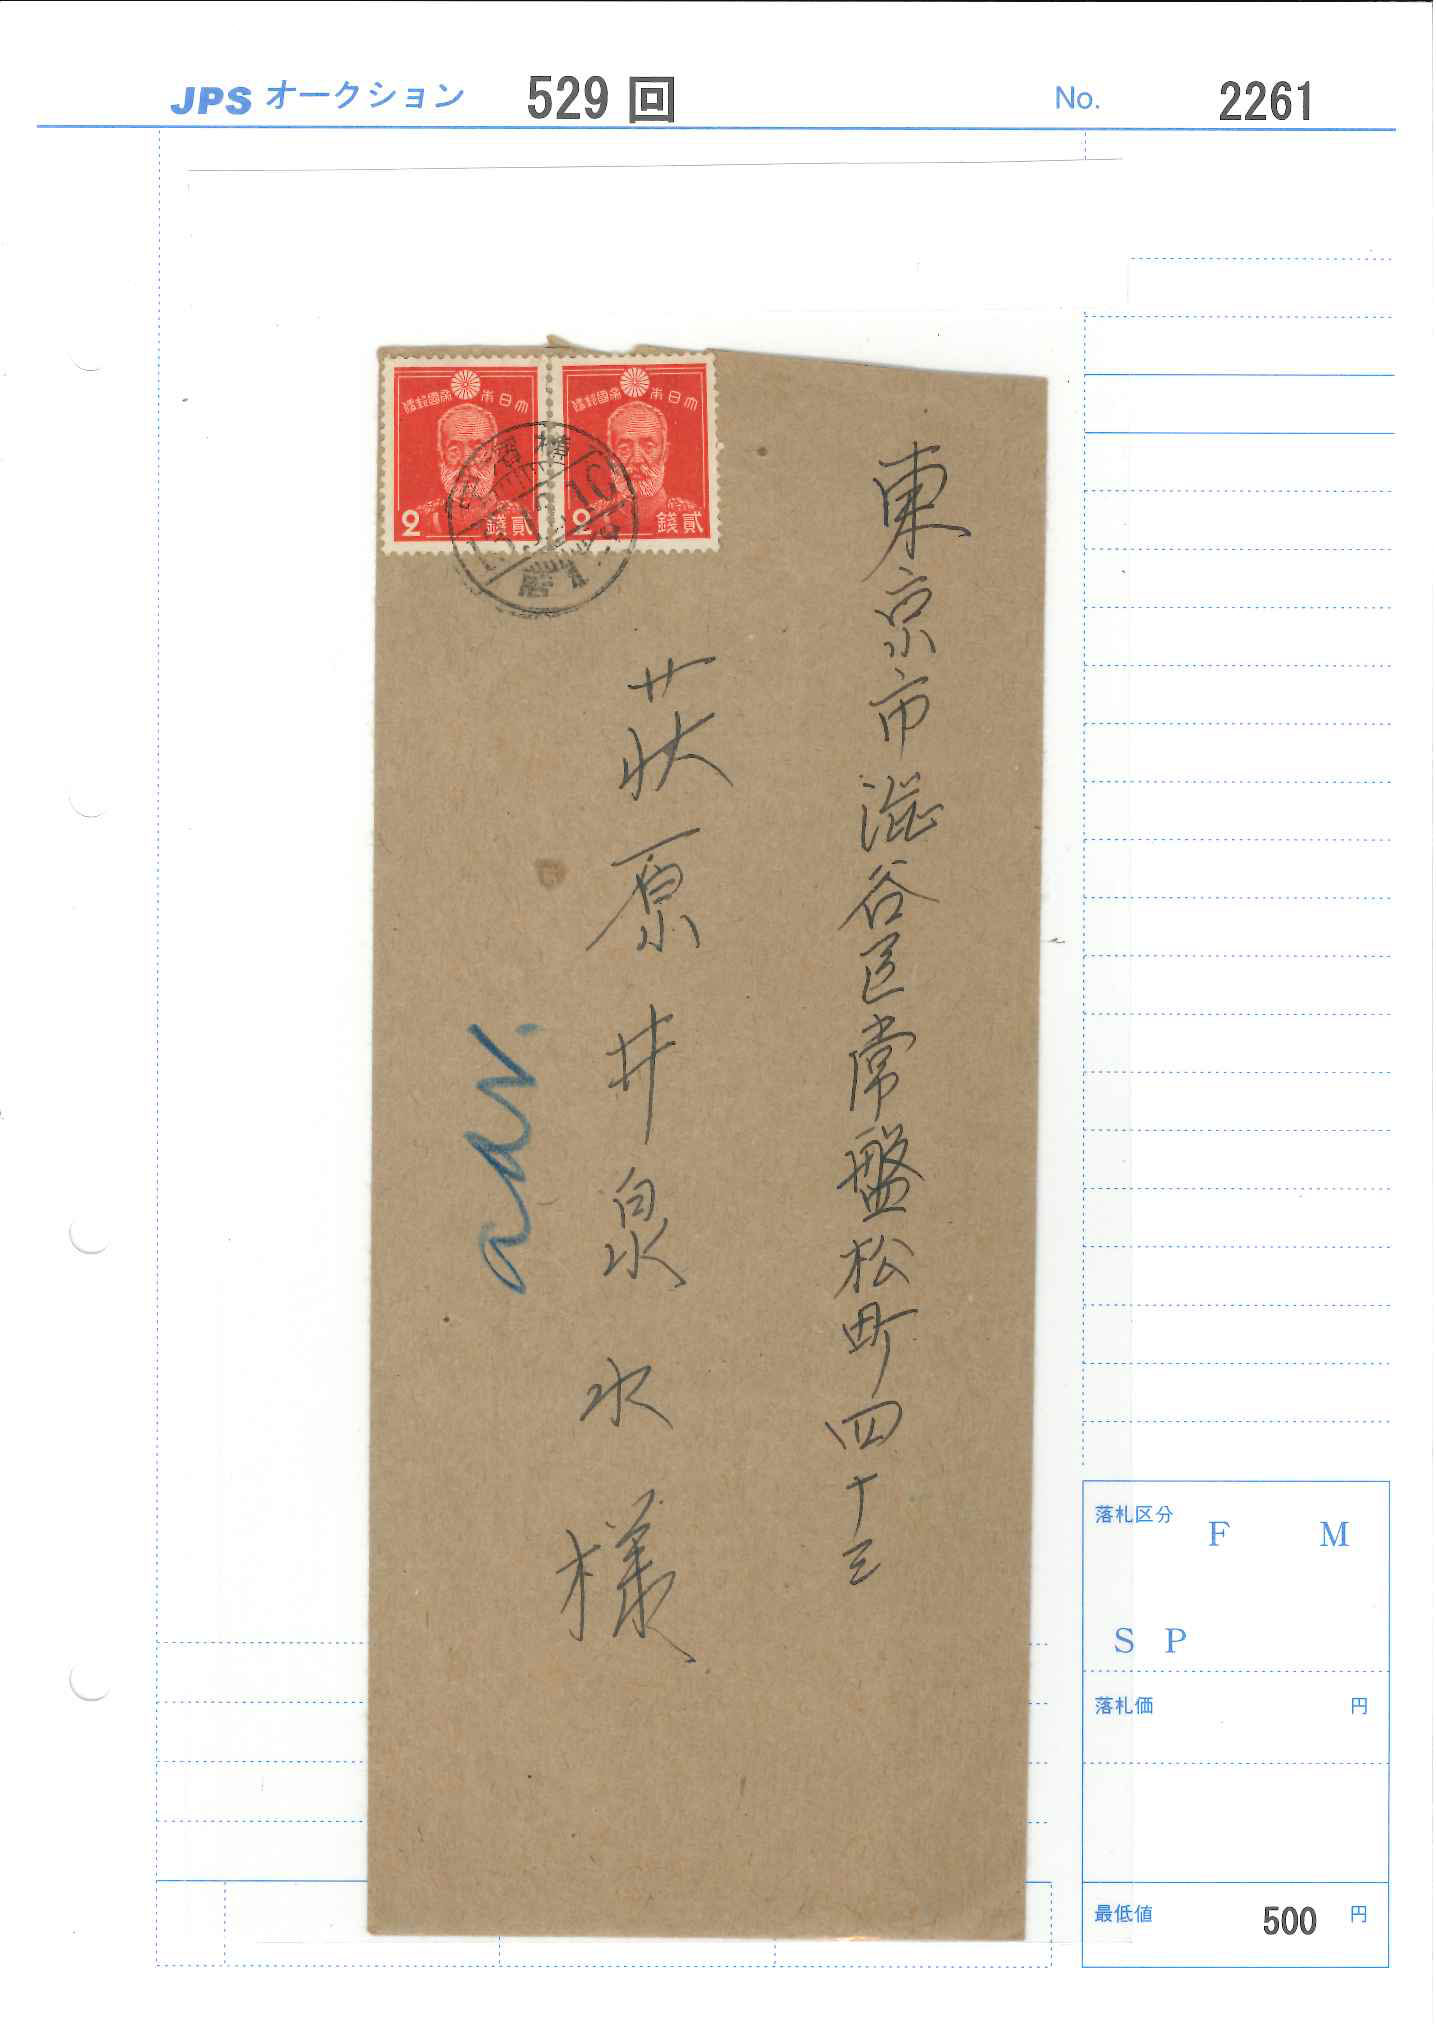 JPS オークション 529 回 No. 2261
大日本帝國郵便
大日本帝國郵便
2 貳錢
2 貳錢
東京市澁谷区常盤松町四十三
荻原井泉水様
落札区分
F M
S P
落札価 円
最低値 500 円